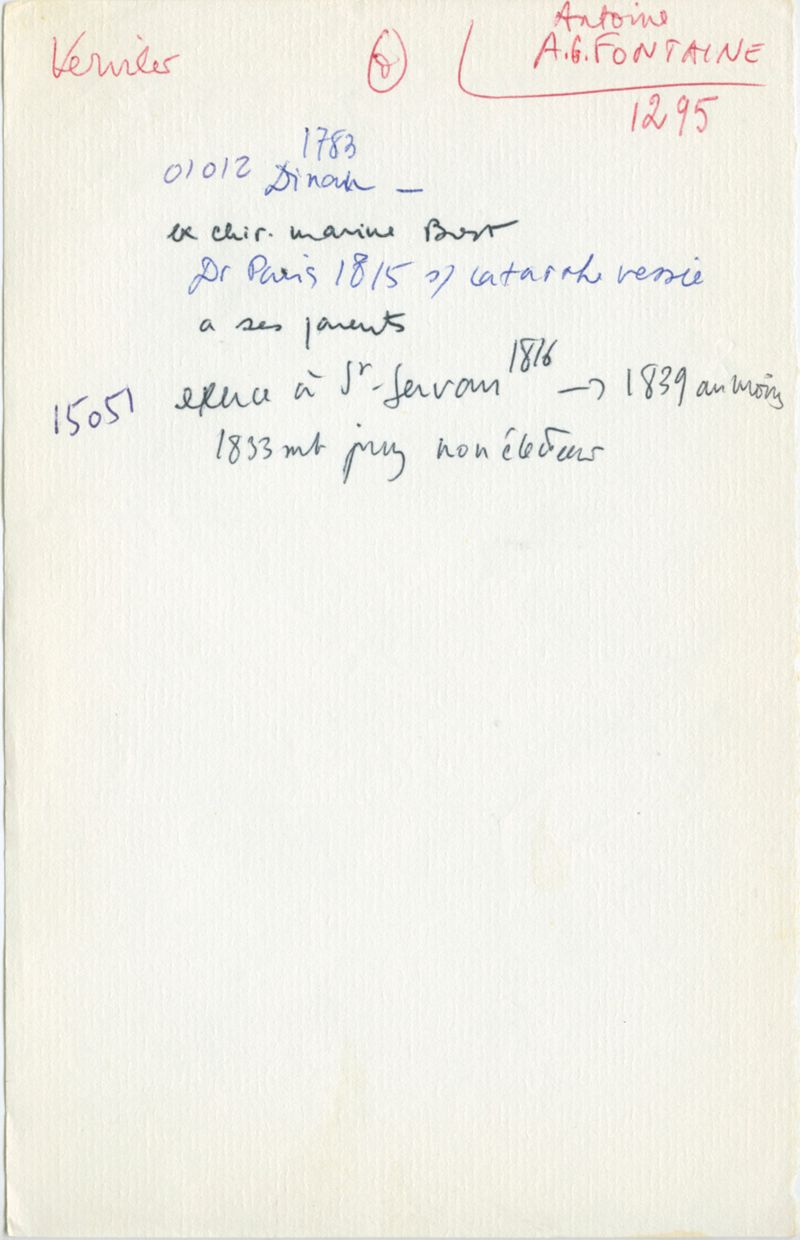 Antoine
Kerviler A.G. FONTAINE
1295
1783
01012 Dinan —
ex chir. marine Brest
Dr Paris 1815 s/ catarrhe vessie
a ses parents
1816
15051 exerce à St-Servan → 1839 au moins
1833 mb jury non électeur